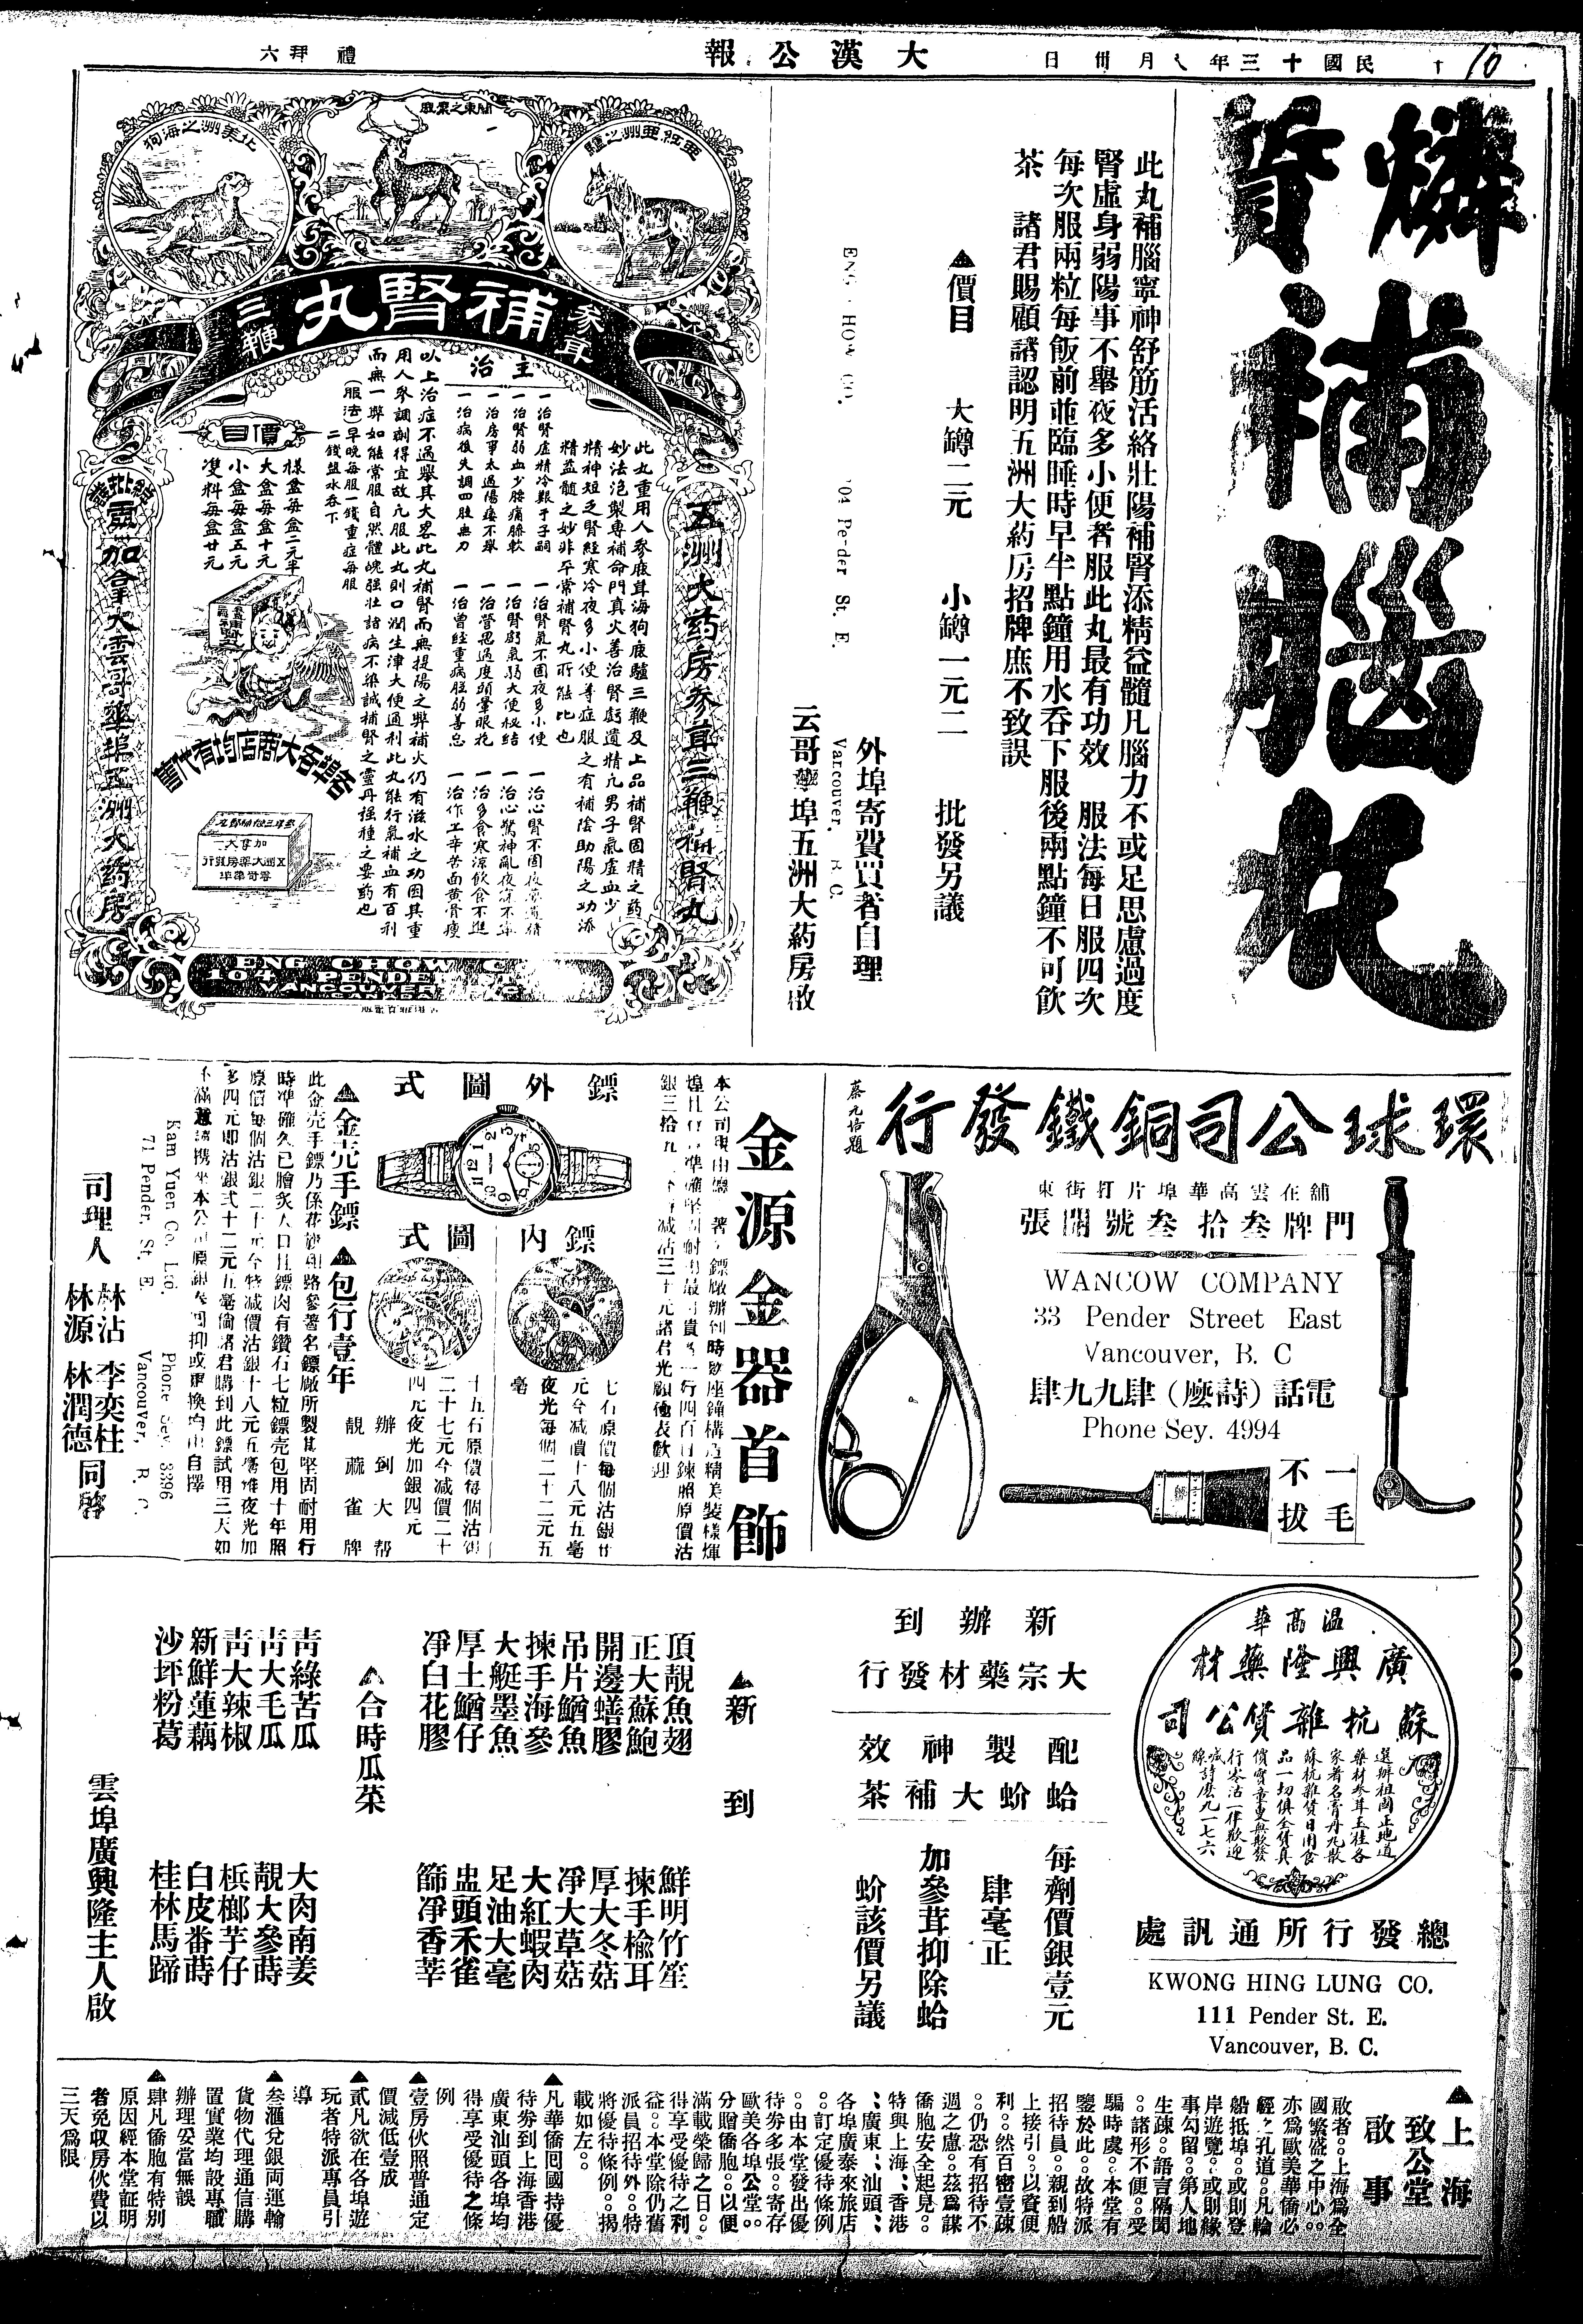 大漢公報
民國十三年八月卅日
禮拜六
10
燐質補腦丸
此丸補腦寧神舒筋活絡壯陽補腎添精益髓凡腦力不或足思慮過度
腎虛身弱陽事不舉夜多小便者服此丸最有功效 服法每日服四次
每次服兩粒每飯前並臨睡時早半點鐘用水吞下服後兩點鐘不可飲
茶 諸君賜顧請認明五洲大药房招牌庶不致誤
▲價目 大罇二元 小罇一元二 批發另議
外埠寄費買者自理
Pender St. E.
Vancouver, B. C.
云哥華埠五洲大药房啟
北美洲之海狗
關東之鹿
亞細亜洲之驢
參茸
補腎丸
三鞭
五洲大药房參茸三鞭補腎丸
此丸重用人參鹿茸海狗鹿驢三鞭及上品補腎固精之药
妙法泡製專補命門真火善治腎虧遺精凡男子氣虛血少
精神短乏腎經寒冷夜多小便等症服之有補陰助陽之功添
精益髓之妙非平常補腎丸所能比也
主治
一治腎虛精冷艱于子嗣
一治腎弱血少腰痛膝軟
一治房事太過陽痿不舉
一治病後失調四肢無力
一治腎氣不固夜多小便
一治腎虧氣弱大便秘結
一治管思過度頭暈眼花
一治曾經重病胘弱善忘
一治心腎不固夜夢遺精
一治心驚神亂夜寐不寧
一治多食寒涼飲食不進
一治作工辛苦面黄骨瘦
以上治症不過舉其大畧此丸補腎而無提陽之弊補火仍有滋水之功因其重
用人參調劑得宜故凡服此丸則口潤生津大便通利此丸能行氣補血有百利
而無一弊如能常服自然體魄强壮諸病不染誠補腎之靈丹强種之要药也
(服法)早晚每服一錢重症每服
二錢盐水吞下
價目
樣盒每盒二元半
大盒每盒十元
小盒每盒五元
雙料每盒廿元
各埠各大商店均有代售
加拿大雲哥華埠五洲大药房
ENG CHOW C
104 PENDE ST
VANCOUVER
環球公司銅鐵發行
蔡元培題
舖在雲高華埠片打街東
門牌叁拾叁號開張
WANCOW COMPANY
33 Pender Street East
Vancouver, B. C
電話(詩麽)肆九九肆
Phone Sey. 4994
一毛不拔
金源金器首飾
鏢外圖式
鏢內圖式
七石原價每個沽銀廿
元今减價十八元五毫
夜光每個二十二元五
毫
十五石原價每個沽銀
二十七元今减價二十
四元夜光加銀四元
辦到大帮
靚蔴雀牌
▲金壳手鏢 ▲包行壹年
司理人 林沾 李奕柱 林源 林潤德 同啓
Kam Yuen Co. Ltd. Phone Sey. 3396
71 Pender. St. E. Vancouver, B. C.
溫高華
廣興隆藥材
蘇杭雜貨公司
選辦祖國正地道
藥材參茸玉桂各
家著名膏丹丸散
蘇杭雜貨日用食
品一切俱全貨真
價實童叟無欺發
行零沽一律歡迎
喊線詩麽九一七六
總發行所通訊處
KWONG HING LUNG CO.
111 Pender St. E.
Vancouver, B. C.
新辦到
大宗藥材發行
配製神效
蛤蚧大補茶
每劑價銀壹元
肆毫正
加參茸抑除蛤
蚧該價另議
▲新到
頂靚魚翅 鮮明竹笙
正大蘇鮑 揀手榆耳
開邊蟮膠 厚大冬菇
吊片鰌魚 凈大草菇
揀手海參 大紅蝦肉
大艇墨魚 足油大毫
厚土鰌仔 盅頭禾雀
凈白花膠 篩凈香莘
▲合時瓜菜
青綠苦瓜 大肉南姜
青大毛瓜 靚大參蒔
青大辣椒 梹榔芋仔
新鮮蓮藕 白皮番蒔
沙坪粉葛 桂林馬蹄
雲埠廣興隆主人啟
▲上海致公堂啟事
啟者。。上海爲全
國繁盛之中心。。
亦爲歐美華僑必
經之孔道。。凡輪
船抵埠。。或則登
岸遊覽。。或則緣
事勾留。。第人地
生疎。。語言隔閡
。。諸形不便。。受
騙時虞。本堂有
鑒於此。。故特派
招待員。。親到船
上接引。。以資便
利。。然百密壹疎
。。仍恐有招待不
週之慮。。茲爲謀
僑胞安全起見。。
特與上海、香港
、廣東、汕頭、
各埠廣泰來旅店
。。訂定優待條例
。。由本堂發出優
待劵多張。。寄存
歐美各埠公堂。。
分贈僑胞。。以便
滿載榮歸之日。。
得享受優待之利
益。。本堂除仍舊
派員招待外。。特
將優待條例。。揭
載如左。。
▲凡華僑囘國持優
待劵到上海香港
廣東汕頭各埠均
得享受優待之條
例
▲壹房伙照普通定
價減低壹成
▲貳凡欲在各埠遊
玩者特派專員引
導
▲叁滙兌銀両運輪
貨物代理通信購
置實業均設專職
辦理妥當無誤
▲肆凡僑胞有特別
原因經本堂証明
者免収房伙費以
三天爲限